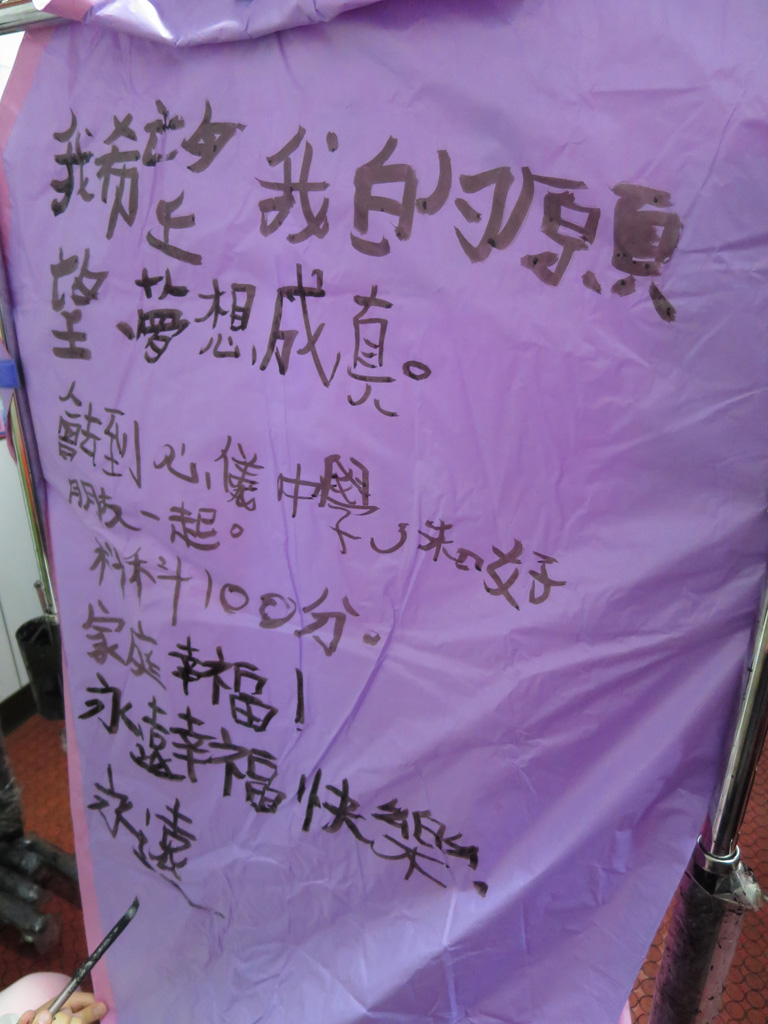 我希望我的願
望夢想成真。
會去到心儀中學,和好
朋友一起。
科科100分。
家庭幸福!
永遠幸福快樂.
永遠